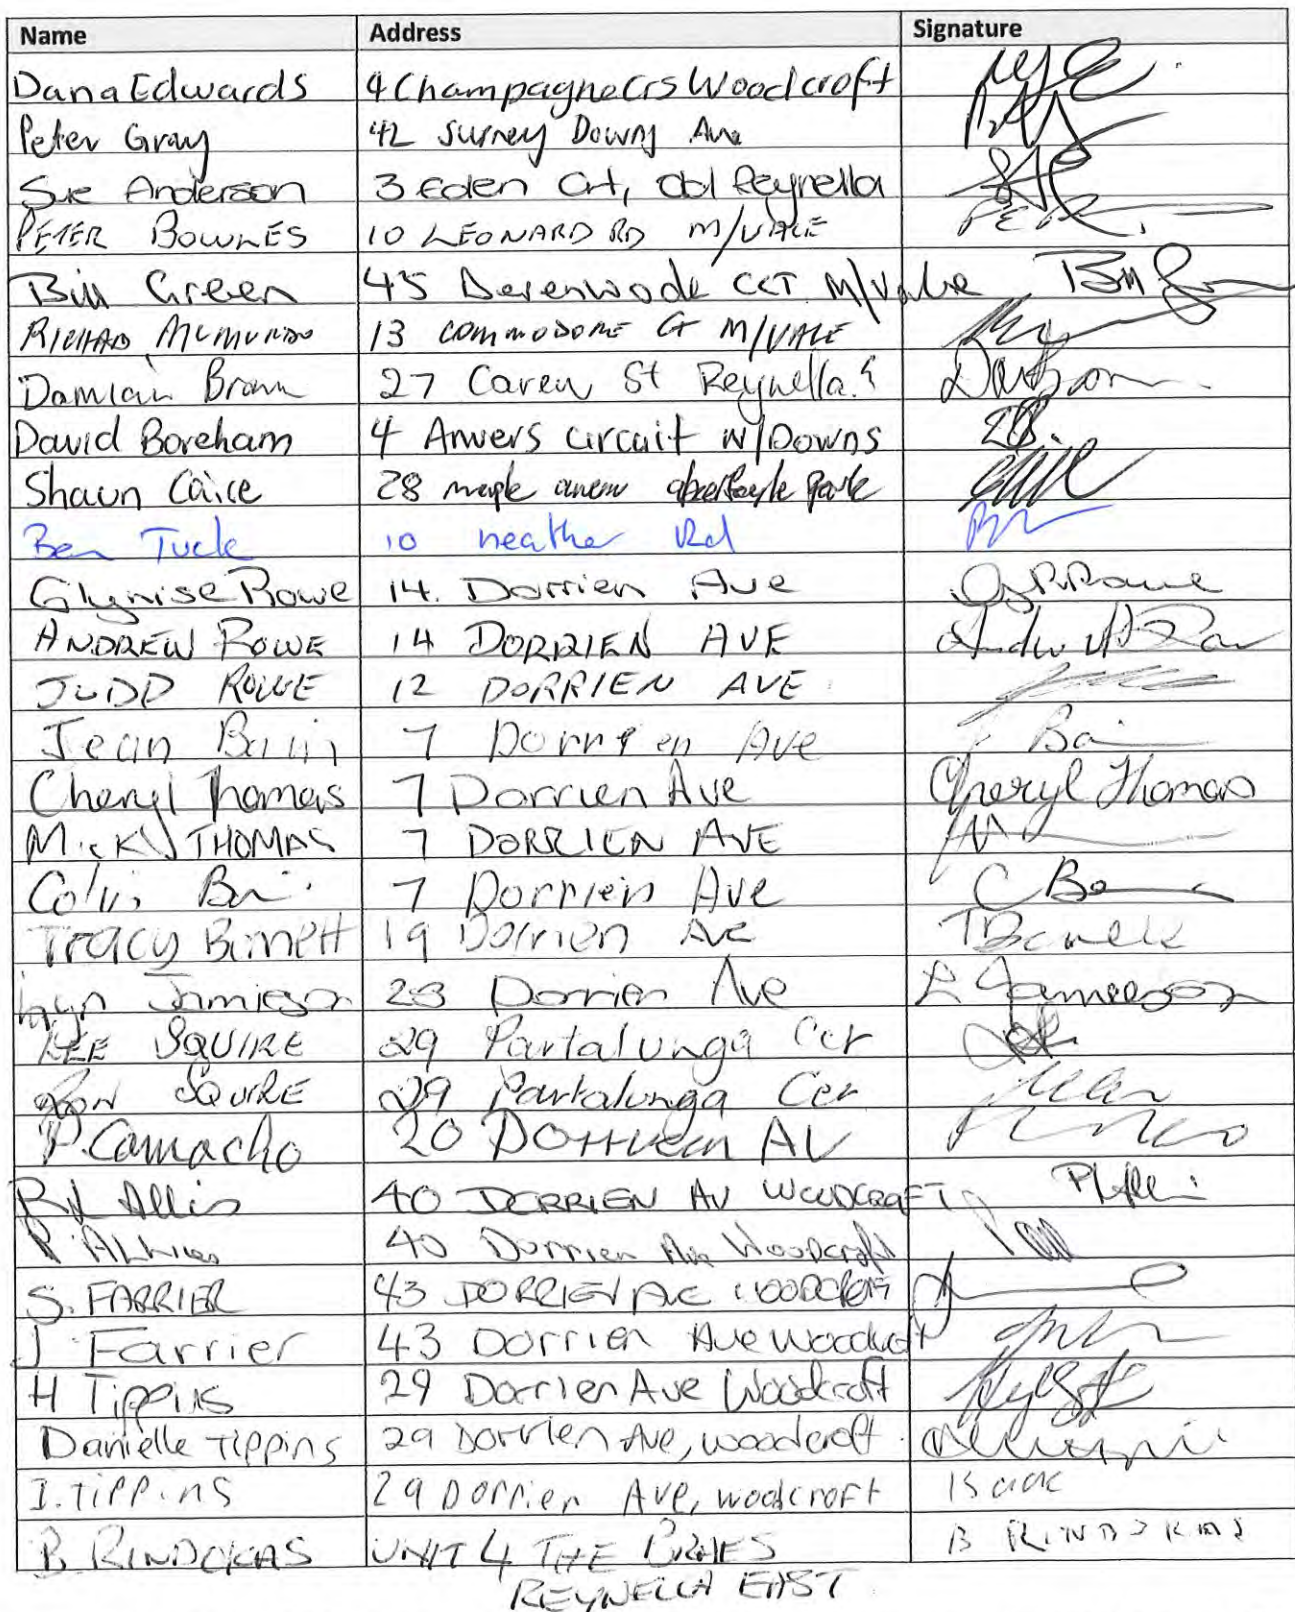 Name Address Signature
Dana Edwards 4 Champagne Crs Woodcroft
Peter Gray 42 Surrey Downs Ave
Sue Anderson 3 Eden Crt, Old Reynella
PETER BOWLES 10 LEONARD RD M/VALE
Bill Green 45 Derenwode CCT M/Vale Bill
RICHARD MCMURDO 13 COMMODORE CT M/VALE
Damian Brown 27 Carew St Reynella
David Boreham 4 Anvers circuit N/Downs
Shaun Caice 28 maple aberfoyle Park
Ben Tuck 10 heather Rd
Glynise Rowe 14. Dorrien Ave Rowe
ANDREW ROWE 14 DORRIEN AVE
JUDD ROWE 12 DORRIEN AVE
Jean Bain 7 Dorrien Ave Bai
Cheryl Thomas 7 Dorrien Ave Cheryl Thomas
MICK THOMAS 7 DORRIEN AVE
Colin 7 Dorrien Ave C
Tracy 19 Dorrien Ave
Lyn Jamieson 23 Dorrien Ave L Jamieson
LEE SQUIRE 29 Partalunga Cer
RON SQUIRE 29 Partalunga Cer
P. Camacho 20 Dorrien AV
Allis 40 DORRIEN AV WOODCRAFT
40 Dorrien Ave Woodcroft
S. FARRIER 43 DORRIEN AVE WOODCROFT
J Farrier 43 Dorrien Ave Woodcroft
H Tippins 29 Dorrien Ave Woodcroft
Danielle Tippins 29 Dorrien Ave, woodcroft.
I. TIPPINS 29 Dorrien AVE, woodcroft Isaac
B. RINDOKAS UNIT 4 THE BRAES B RINDOKAS
REYNELLA EAST